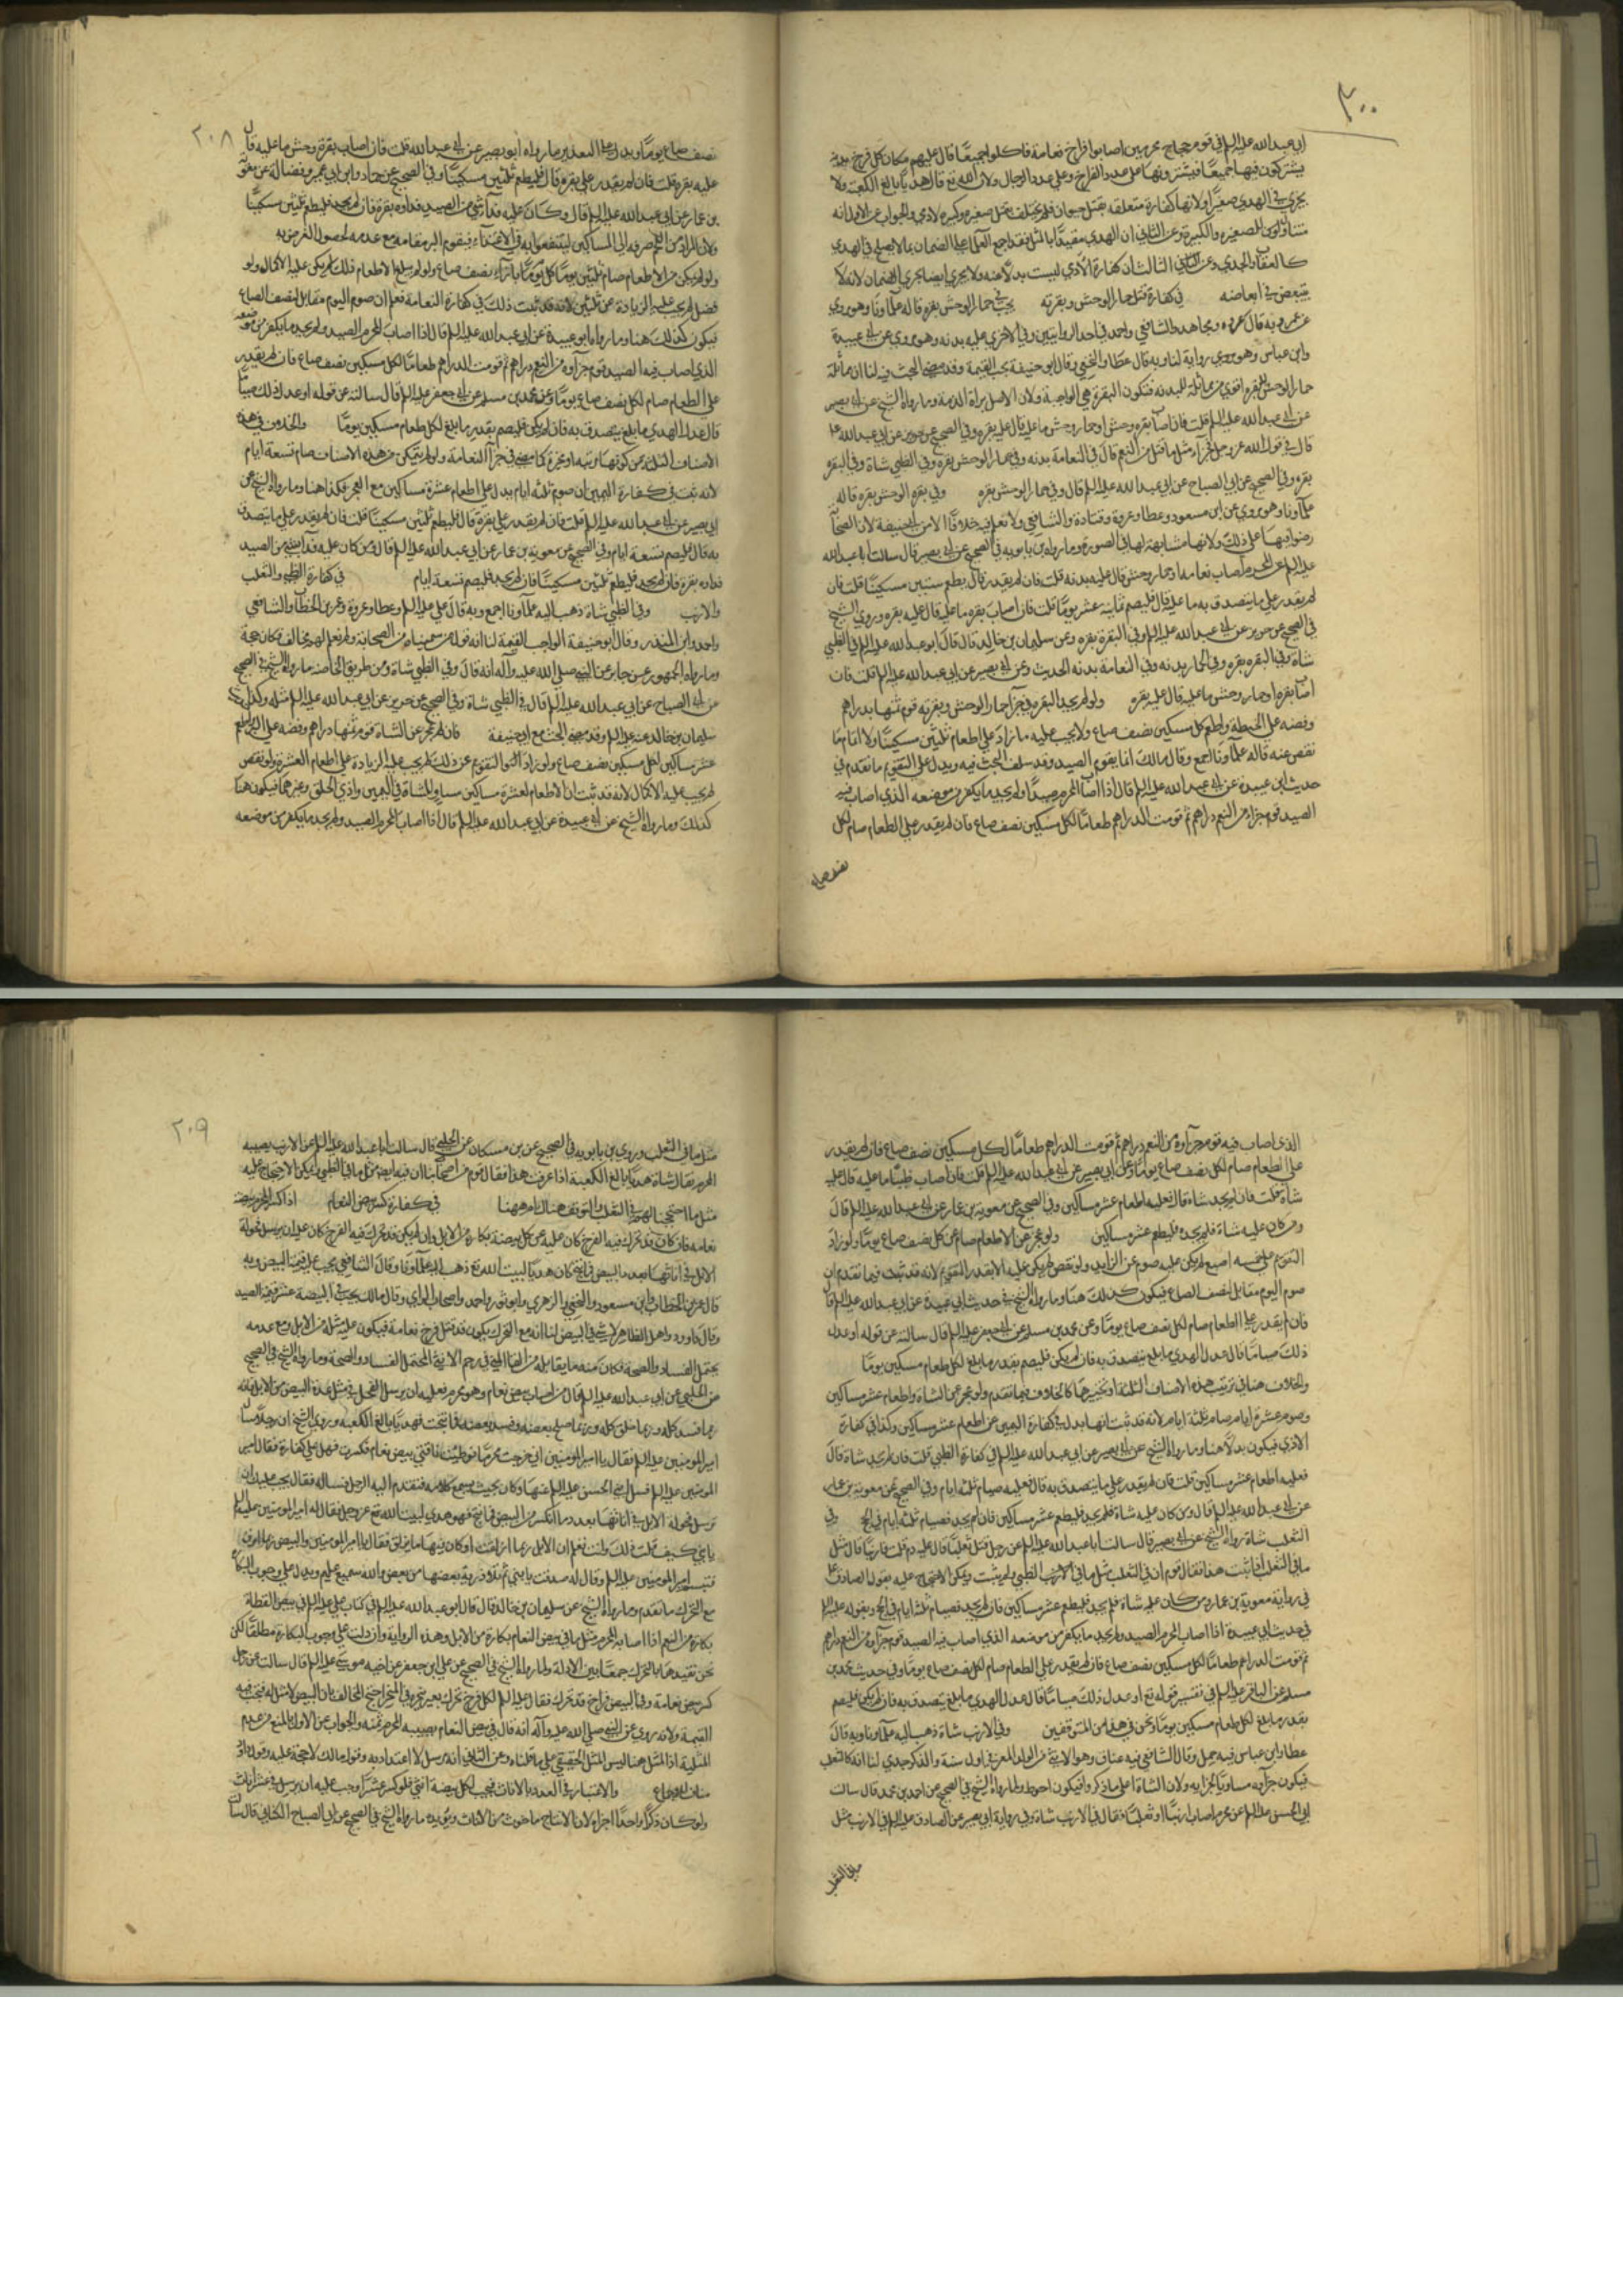 ٣٠٠
ابي عبد الله عليه السلم في قوم حجاج محرمين اصابوا فراخ نعامة فاكلوا جميعًا قال عليهم مكان كل فرخ بدنة
يشتركون فيها جميعًا فيشترونها على عدد الفراخ وعلى عدد الرجال ولان الله تع قال هديًا بالغ الكعبة ولا
يجزي في الهدي صغيرًا ولانها كفارة متعلقه بقتل حيوان فلم يختلف بقتل صغيره وكبيره لادمي والجواب عن الاول انه
كالعناق والجدي وعن الثالث ان كفارة الادمي ليست بدلا عنه ولا يجري ايضا مجرى الضمان لانه لا
يتبعض في ابعاضه في كفارة قتل حمار الوحش وبقرته يجب في حمار الوحش بقره قاله علماونا وهو مروي
عن عمر وبه قال عروه ومجاهد والشافعي واحمد في احد الروايتين وفي الاخرى عليه بدنه وهو مروي عن ابي عبيدة
وابن عباس وهو مروي رواية لنا وبه قال عطا والنخعي وقال ابو حنيفة يجب القيمة وقد مضى البحث فيه لنا ان مماثلة
حمار الوحش للبقره اقوى من مماثلته للبدنه فتكون البقره هي الواجبة ولان الاصل براة الذمة وما رواه الشيخ عن ابي بصير
عن ابي عبد الله عليه السلم قلت فان اصاب بقره وحش او حمار وحش ما عليه قال عليه بقره وفي الصحيح عن حريز عن ابي عبد الله ع
قال في قول الله عز وجل فجزآء مثل ما قتل من النعم قال في النعامة بدنه وفي حمار الوحش بقره وفي الظبي شاة وفي البقره
بقره وفي الصحيح عن ابي الصباح عن ابي عبد الله عليه السلم قال وفي حمار الوحش بقره وفي بقره الوحش بقره قاله
علماونا وهو مروي عن ابن مسعود وعطا وعروة وقتادة والشافعي ولا نعلم فيه خلافًا الا من ابي حنيفة لان الصحابة
عليه السلم عن المحرم اصاب نعامه او حمار وحش قال عليه بدنه قلت فان لم يقدر قال يطعم ستين مسكينًا قلت فان
لم يقدر على ما يتصدق به ما عليه قال فليصم ثمانية عشر يومًا قلت فان اصاب بقره ما عليه قال عليه بقره وروى الشيخ
في الصحيح عن حريز عن ابي عبد الله عليه السلم وفي البقرة بقره وعن سليمان بن خالد قال قال ابو عبد الله عليه السلم في الظبي
شاة وفي البقره بقره وفي الحمار بدنه وفي النعامة بدنه الحديث وعن ابي بصير عن ابي عبد الله عليه السلم قلت فان
اصاب بقره او حمار وحش ما عليه قال عليه بقره ولو لم يجد البقره في جزآ حمار الوحش وبقرته قوم ثمنها بدراهم
وفضه على الحنطة واطعم كل مسكين نصف صاع ولا يجب عليه ما زاد على اطعام ثلثين مسكينًا ولا اتمام ما
نقص عنه قاله علماونا اجمع وقال مالك انما يقوم الصيد وقد سلف البحث فيه ويدل على التقويم ما تقدم في
حديث ابي عبيدة عن ابي عبد الله عليه السلم قال اذا اصاب المحرم صيدًا ولم يجد ما يكفر من موضعه الذي اصاب فيه
الصيد قوم جزاوه من النعم دراهم ثم قومت الدراهم طعامًا لكل مسكين نصف صاع فان لم يقدر على الطعام صام لكل
نصف صاع
٢٠٨
نصف صاع يومًا ويدل على العدد ما رواه ابو بصير عن ابي عبد الله قلت فان اصاب بقرة وحش ما عليه قال
عليه بقره قلت فان لم يقدر على بقره قال فليطعم ثلثين مسكينًا وفي الصحيح عن حماد وابن ابي عمير وفضالة عن معوية
بن عمار عن ابي عبد الله عليه السلم قال وكان عليه فدآ شي من الصيد فداوه بقرة فان لم يجد فليطعم ثلثين مسكينًا
ولو لم يتمكن من الاطعام صام ثلثين يومًا كل يوم بازاء نصف صاع ولو لم يبلغ الاطعام ذلك لم يكن عليه الاكمال ولو
فضل لم يجب عليه الزيادة عن ثلثين لانه قد ثبت ذلك في كفارة النعامة فعلم ان صوم اليوم مقابل لنصف الصاع
فيكون كذلك هنا وما رواه ابو عبيدة عن ابي عبد الله عليه السلم قال اذا اصاب المحرم الصيد ولم يجد ما يكفر من موضعه
الذي اصاب فيه الصيد قوم جزآوه من النعم دراهم ثم قومت الدراهم طعامًا لكل مسكين نصف صاع فان لم يقدر
على الطعام صام لكل نصف صاع يومًا وعن محمد بن مسلم عن ابي جعفر عليه السلم قال سالته عن قوله او عدل ذلك صيامًا
قال عدل الهدي ما بلغ يتصدق به فان لم يكن فليصم بقدر ما بلغ لكل طعام مسكين يومًا والخلاف في هذه
الاصناف الثلثة من كونها مرتبه او مخيرة كما مضى في جزآ النعامة ولو لم يتمكن من هذه الاصناف صام تسعة ايام
لانه ثبت في كفارة اليمين ان صوم ثلثه ايام بدل على اطعام عشرة مساكين مع العجز فكذا هنا وما رواه الشيخ عن
ابي بصير عن ابي عبد الله عليه السلم قلت فان لم يقدر على بقرة قال فليطعم ثلثين مسكينًا قلت فان لم يقدر على ما يتصدق
به قال فليصم تسعة ايام وفي الصحيح عن معوية بن عمار عن ابي عبد الله عليه السلم قال ومن كان عليه فدآ شي من الصيد
فداوه بقرة فان لم يجد فليطعم ثلثين مسكينًا فان لم يجد فليصم تسعة ايام في كفارة الظبي والثعلب
والارنب وفي الظبي شاة ذهب اليه علماونا اجمع وبه قال علي عليه السلم وعطا وعروة وعمر بن الخطاب والشافعي
واحمد وابن المنذر وقال ابو حنيفة الواجب القيمة لنا انه قول من سميناه من الصحابة ولم نعلم لهم مخالف فكان حجة
وما رواه الجمهور عن جابر عن النبي صلى الله عليه وآله انه قال وفي الظبي شاة ومن طريق الخاصه ما رواه الشيخ في الصحيح
عن ابي الصباح عن ابي عبد الله عليه السلم قال في الظبي شاة وفي الصحيح عن حريز عن ابي عبد الله عليه السلم مثله وكذا في
سليمان بن خالد عنه عليه السلم وقد مضى البحث مع ابي حنيفة فان عجز عن الشاة قوم ثمنها دراهم وفضه على البر واطعم
عشر مساكين لكل مسكين نصف صاع ولو زاد التقويم عن ذلك لم يجب عليه الزيادة على اطعام العشرة ولو نقص
لم يجب عليه الاكمال لانه قد ثبت ان الاطعام لعشرة مساكين مساو للشاة في اليمين واذى الحلق وغيرهما فيكون هنا
كذلك وما رواه الشيخ عن ابي عبيدة عن ابي عبد الله عليه السلم قال اذا اصاب المحرم الصيد ولم يجد ما يكفر من موضعه
الذى اصاب فيه قوم جزآوه من النعم دراهم ثم قومت الدراهم طعامًا لكل مسكين نصف صاع فان لم يقدر
على الطعام صام لكل نصف صاع يومًا وعن ابي بصير عن ابي عبد الله عليه السلم قلت فان اصاب ظبيًا ما عليه قال عليه
شاة قلت فان لم يجد شاة قال فعليه اطعام عشر مساكين وفي الصحيح عن معوية بن عمار عن ابي عبد الله عليه السلم قال
ومن كان عليه شاة فلم يجد فليطعم عشر مساكين ولو عجز عن الاطعام صام عن كل نصف صاع يومًا ولو زاد
التقويم على خمسه اصوع لم يكن عليه صوم عن الزايد ولو نقص لم يكن عليه الا بقدر التقويم لانه قد ثبت فيما تقدم ان
صوم اليوم مقابل لنصف الصاع فيكون كذلك هنا وما رواه الشيخ في حديث ابي عبيدة عن ابي عبد الله عليه السلم قال
فان لم يقدر على الطعام صام لكل نصف صاع يومًا وعن محمد بن مسلم عن ابي جعفر عليه السلم قال سالته عن قوله او عدل
ذلك صيامًا قال عدل الهدي ما بلغ يتصدق به فان لم يكن فليصم بقدر ما بلغ لكل طعام مسكين يومًا
والخلاف هنا في ترتيب هذه الاصناف الثلثة او تخييرها كالخلاف فيما تقدم ولو عجز عن الشاة واطعام عشر مساكين
وصوم عشرة ايام صام ثلثة ايام لانه قد ثبت انها بدل في كفارة اليمين عن اطعام عشر مساكين وكذا في كفارة
الاذى فيكون بدلًا هنا وما رواه الشيخ عن ابي بصير عن ابي عبد الله عليه السلم في كفارة الظبي قلت فان لم يجد شاة قال
فعليه اطعام عشر مساكين قلت فان لم يقدر على ما يتصدق به قال فعليه صيام ثلثه ايام وفي الصحيح عن معوية بن عمار
عن ابي عبد الله عليه السلم قال ومن كان عليه شاة فلم يجد فليطعم عشر مساكين فان لم يجد فصيام ثلثه ايام في الحج وفي
الثعلب شاة رواه الشيخ عن ابي بصير قال سالت ابا عبد الله عليه السلم عن رجل قتل ثعلبًا قال عليه دم قلت فارنبًا قال مثل
ما في الثعلب اذا ثبت هذا فقال قوم ان في الثعلب مثل ما في الظبي ولم يثبت ويمكن الاحتجاج عليه بقول الصادق ع
في رواية معوية بن عمار ومن كان عليه شاة فلم يجد فليطعم عشر مساكين فان لم يجد فصيام ثلثة ايام في الحج وبقوله عليه السلم
في حديث ابي عبيدة اذا اصاب المحرم الصيد ولم يجد ما يكفر من موضعه الذي اصاب فيه الصيد قوم جزآوه من النعم دراهم
ثم قومت الدراهم طعامًا لكل مسكين نصف صاع فان لم يقدر على الطعام صام لكل نصف صاع يومًا وفي حديث محمد بن
مسلم عن الباقر عليه السلم في تفسير قوله تع او عدل ذلك صيامًا قال عدل الهدي ما بلغ يتصدق به فان لم يكن فليصم
بقدر ما بلغ لكل طعام مسكين يومًا ونحن في هذا من المتوقفين وفي الارنب شاة ذهب اليه علماونا وبه قال
عطا وابن عباس فيه حمل وقال الشافعي فيه عناق وهو الانثى من اولاد المعز في اول سنة والذكر جدي لنا انه كالثعلب
فيكون جزآوه مساويًا لجزايه ولان الشاة اعلى ما ذكروا فيكون احوط ولما رواه الشيخ في الصحيح عن احمد بن محمد قال سالت
ابي الحسن عليه السلم عن محرم اصاب ارنبًا او ثعلبًا فقال في الارنب شاة وفي رواية ابي بصير عن الصادق عليه السلم في الارنب مثل
ما في الثعلب
٢٠٩
مثل ما في الثعلب وروى بن بابويه في الصحيح عن بن مسكان عن الحلبي قال سالت ابا عبد الله عليه السلم عن الارنب يصيبه
المحرم فقال شاة هديًا بالغ الكعبة اذا عرفت هذا فقال قوم من اصحابنا ان فيه ايضا مثل ما في الظبي ويمكن الاحتجاج عليه
مثل ما احتججنا لهم في الثعلب والتوقف هناك كما هو ههنا في كفارة كسر بيض النعام اذا كسر المحرم بيضة
نعامه فان كان قد تحرك فيه الفرخ كان عليه عن كل بيضة بكارة من الابل وان لم يكن قد تحرك فيه الفرخ كان عليه ان يرسل فحولة
الابل في اناثها بعدد البيض فما نتج كان هديًا لبيت الله تع ذهب اليه علماونا وقال الشافعي يجب عليه قيمة البيض وبه
قال عمر بن الخطاب وابن مسعود والنخعي والزهري وابو ثور واحمد واصحاب الراي وقال مالك يجب في البيضة عشر قيمة الصيد
وقال داود واهل الظاهر لا شي في البيض لنا انه مع التحرك يكون قد قتل فرخ نعامة فيكون عليه مثله من الابل ومع عدمه
يحتمل الفساد والصحة فكان منه ما يقابله من القا المني في رحم الانثى المحتمل الفساد والصحة وما رواه الشيخ في الصحيح
عن الحلبي عن ابي عبد الله عليه السلم قال من اصاب بيض نعام وهو محرم فعليه ان يرسل الفحل في مثل عدة البيض من الابل فانه
ربما فسد كله وربما خلق كله وربما صلح بعضه وفسد بعضه فما نتجت فهديًا بالغ الكعبه وروى الشيخ ان رجلًا سال
امير المومنين عليه السلم فقال يا امير المومنين اني خرجت محرمًا فوطئت ناقتي بيض نعام فكسرت فهل علي كفارة فقال امض
ترسل فحولة الابل في اناثها بعدد ما انكسر من البيض فما نتج فهو هدي لبيت الله تع عز وجل فقال له امير المومنين عليه السلم
يا بني كيف قلت ذلك وانت تعلم ان الابل ربما ازلقت او كان فيها ما يزلق فقال يا امير المومنين والبيض ربما امرق
فتبسم امير المومنين عليه السلم وقال له صدقت يا بني ثم تلا ذرية بعضها من بعض والله سميع عليم ويدل على وجوب البكارة
مع التحرك ما تقدم وما رواه الشيخ عن سليمان بن خالد قال قال ابو عبد الله عليه السلم في كتاب علي عليه السلم في بيض القطاة
بكارة من الغنم اذا اصابه المحرم مثل ما في بيض النعام بكارة من الابل وهذه الرواية وان دلت على وجوب البكارة مطلقًا لكن
نحن نقيدها بالتحرك جمعًا بين الادلة ولما رواه الشيخ في الصحيح عن علي بن جعفر عن اخيه موسى عليه السلم قال سالت عن رجل
كسر بيض نعامة وفي البيض فراخ قد تحرك فقال عليه السلم لكل فرخ تحرك بعير ينحره في المنحر احتج المخالف بان البيض لا مثل له فيجب فيه
القيمة ولانه روي عن النبي صلى الله عليه وآله انه قال في بيض النعام يصيبه المحرم ثمنه والجواب عن الاول بالمنع من عدم
المثلية اذ المثل هنا ليس المثل الحقيقي على ما قلناه وعن الثاني انه مرسل لا اعتداد به وقول مالك لا حجة عليه وقول داود
مناف للاجماع والاعتبار في العدد بالاناث فيجب لكل بيضة انثى فلو كسر عشرًا وجب عليه ان يرسل في عشر اناث
ولو كان ذكرًا واحدًا اجزاه لان الانتاج ماخوذ من الاناث ويويده ما رواه الشيخ في الصحيح عن ابي الصباح الكناني قال سالت